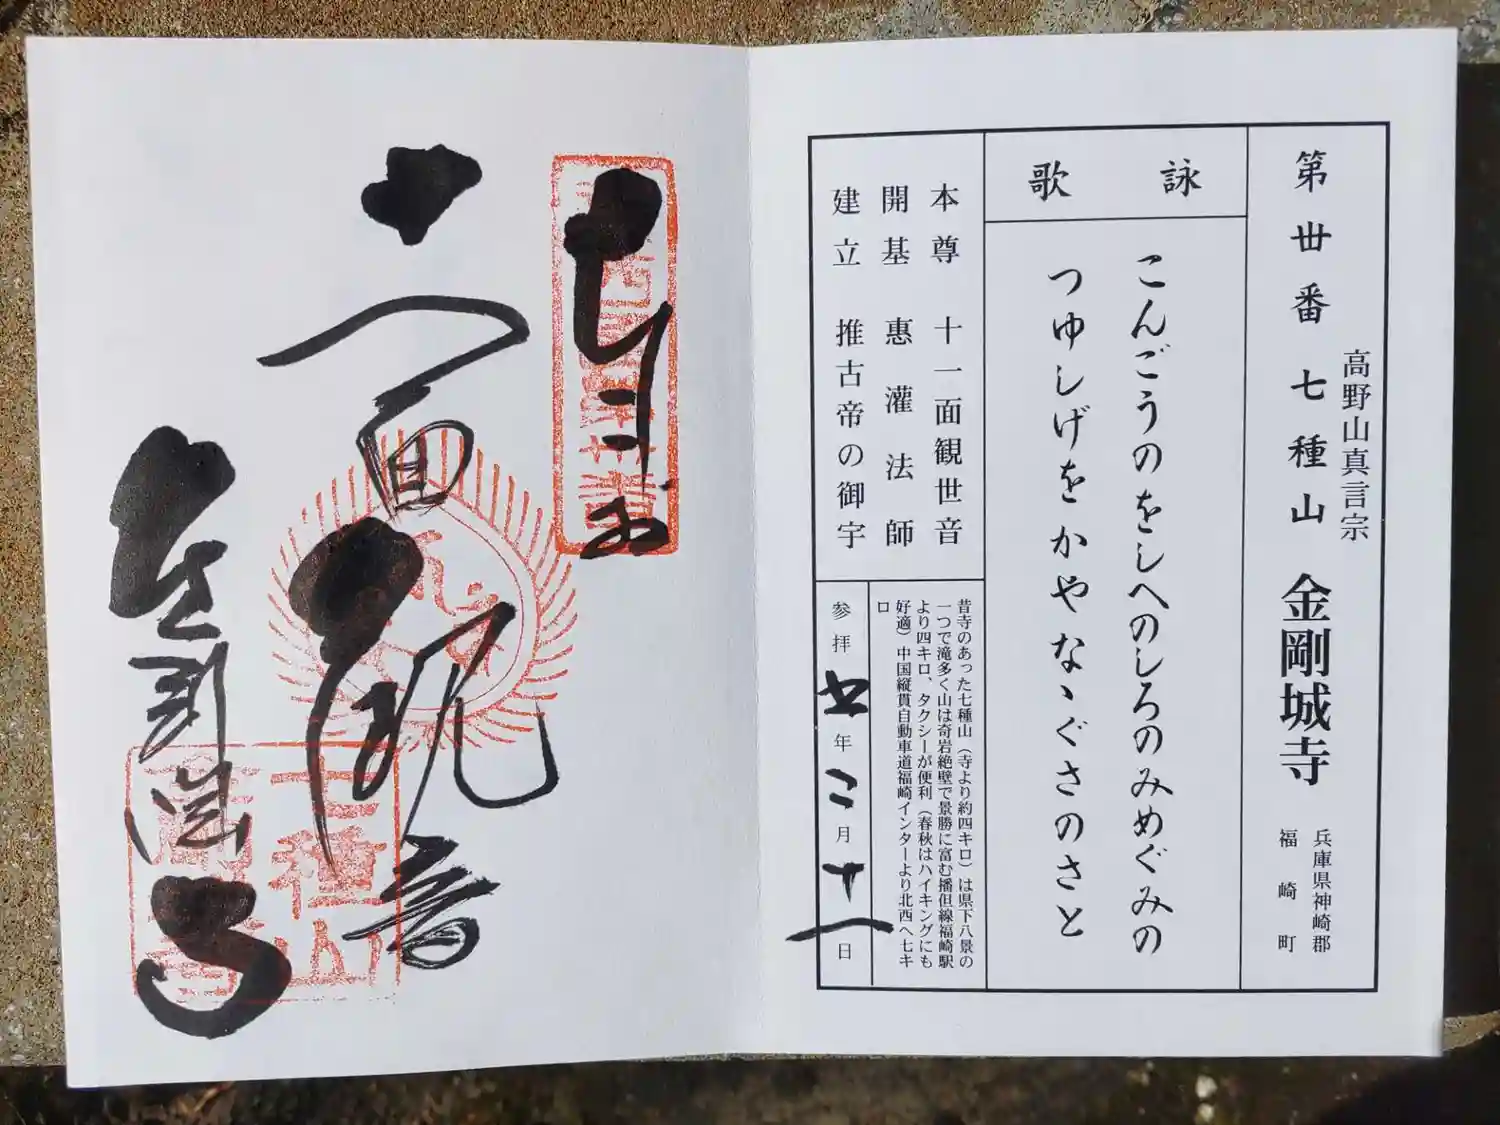 第丗番 七種山 金剛城寺
高野山真言宗
兵庫県神崎郡
福崎町
詠歌
こんごうのをしへのしろのみめぐみの
つゆしげをかやなゝぐさのさと
本尊 十一面観世音
開基 惠灌法師
建立 推古帝の御宇
昔寺のあった七種山（寺より約四キロ）は県下八景の
一つで滝多く山は奇岩絶壁で景勝に富む播但線福崎駅
より四キロ、タクシーが便利（春秋はハイキングにも
好適）中国縦貫自動車道福崎インターより北西へ七キ
ロ
参拝 七年二月十一日
十一面観音
金剛城寺
七種山